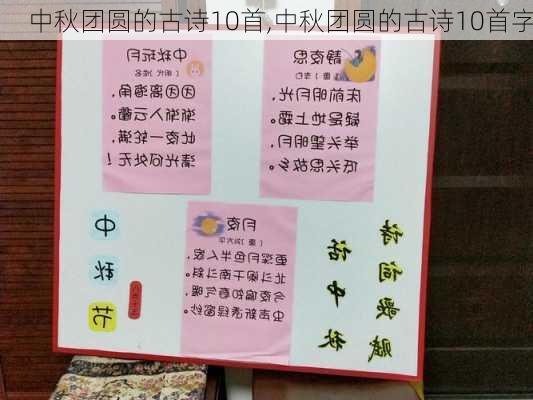 中秋团圆的古诗10首,中秋团圆的古诗10首字
中秋玩月
团团离海角,
渐渐入云衢。
此夜一轮满,
清光何处无!
静夜思
(唐)李白
床前明月光,
疑是地上霜。
举头望明月,
低头思故乡。
月夜
更深月色半人家,
北斗阑干南斗斜。
今夜偏知春气暖,
虫声新透绿窗纱。
中秋节
八月十五
诗词歌赋
话中秋